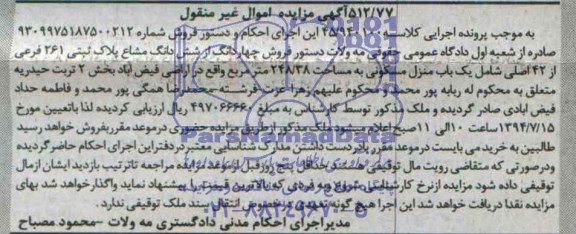 ۵۱۲/۷۷آگهی مزایده اموال غیر منقول
به موجب پرونده اجرایی کلاسه ۴۵/۹۴۰۱۰۰ این اجرای احکام و دستور فروش شماره ۹۳۰۹۹۷۵۱۸۷۵۰۰۲۱۲
صادره از شعبه اول دادگاه عمومی حقوقی مه ولات دستور فروش چهاردانگ از شش دانگ مشاع پلاک ثبتی ۲۶۱ فرعی
از ۴۲ اصلی شامل یک باب منزل مسکونی به مساحت ۲۴۸/۳۸ متر مربع واقع در اراضی فیض اباد بخش ۲ تربت حیدریه
متعلق به محکوم له ربابه پور محمد و محکوم علیهم زهرا-عزت-فرشته-محمدرضا همگی پور محمد و فاطمه حداد
فیض ابادی صادر گردیده و ملک مذکور توسط کارشناس به مبلغ ۴۹۷۰۶۶۶۶۰ ریال ارزیابی گردیده لذا باتعیین مورخ
۱۳۹۴/۷/۱۵ ساعت ۱۰الی ۱۱صبح اعلام میشود ملک مذکور از طریق مزایده حضوری درموعد مقرربفروش خواهد رسید
طالبین به خرید می بایست در موعد مقرر بادردست داشتن مدارک شناسایی معتبردردفتراین اجرای احکام حاضرگردیده
ودرصورتی که متقاضی رویت مال توقیفی هستند حداقل پنج روزقبل ازموعد مزایده مراجعه تاترتیب بازدید ایشان ازمال
توقیفی داده شود مزایده ازنرخ کارشناسی شروع وبه فردی که بالاترین قیمت را پیشنهاد نماید واگذارخواهد شد بهای
مزایده نقدا دریافت خواهد شد این اجرا هیچ گونه تعهدی درخصوص انتقال سند ملک توقیفی ندارد.
مدیراجرای احکام مدنی دادگستری مه ولات -محمود مصباح
ParsNamadData
۰۲۱-۸۸۳۴۹۶۷۰-۵